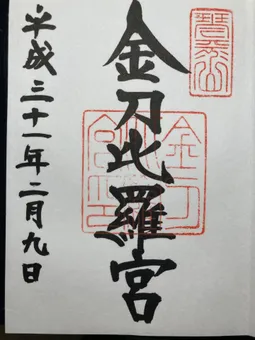 金刀比羅宮
平成三十一年二月九日